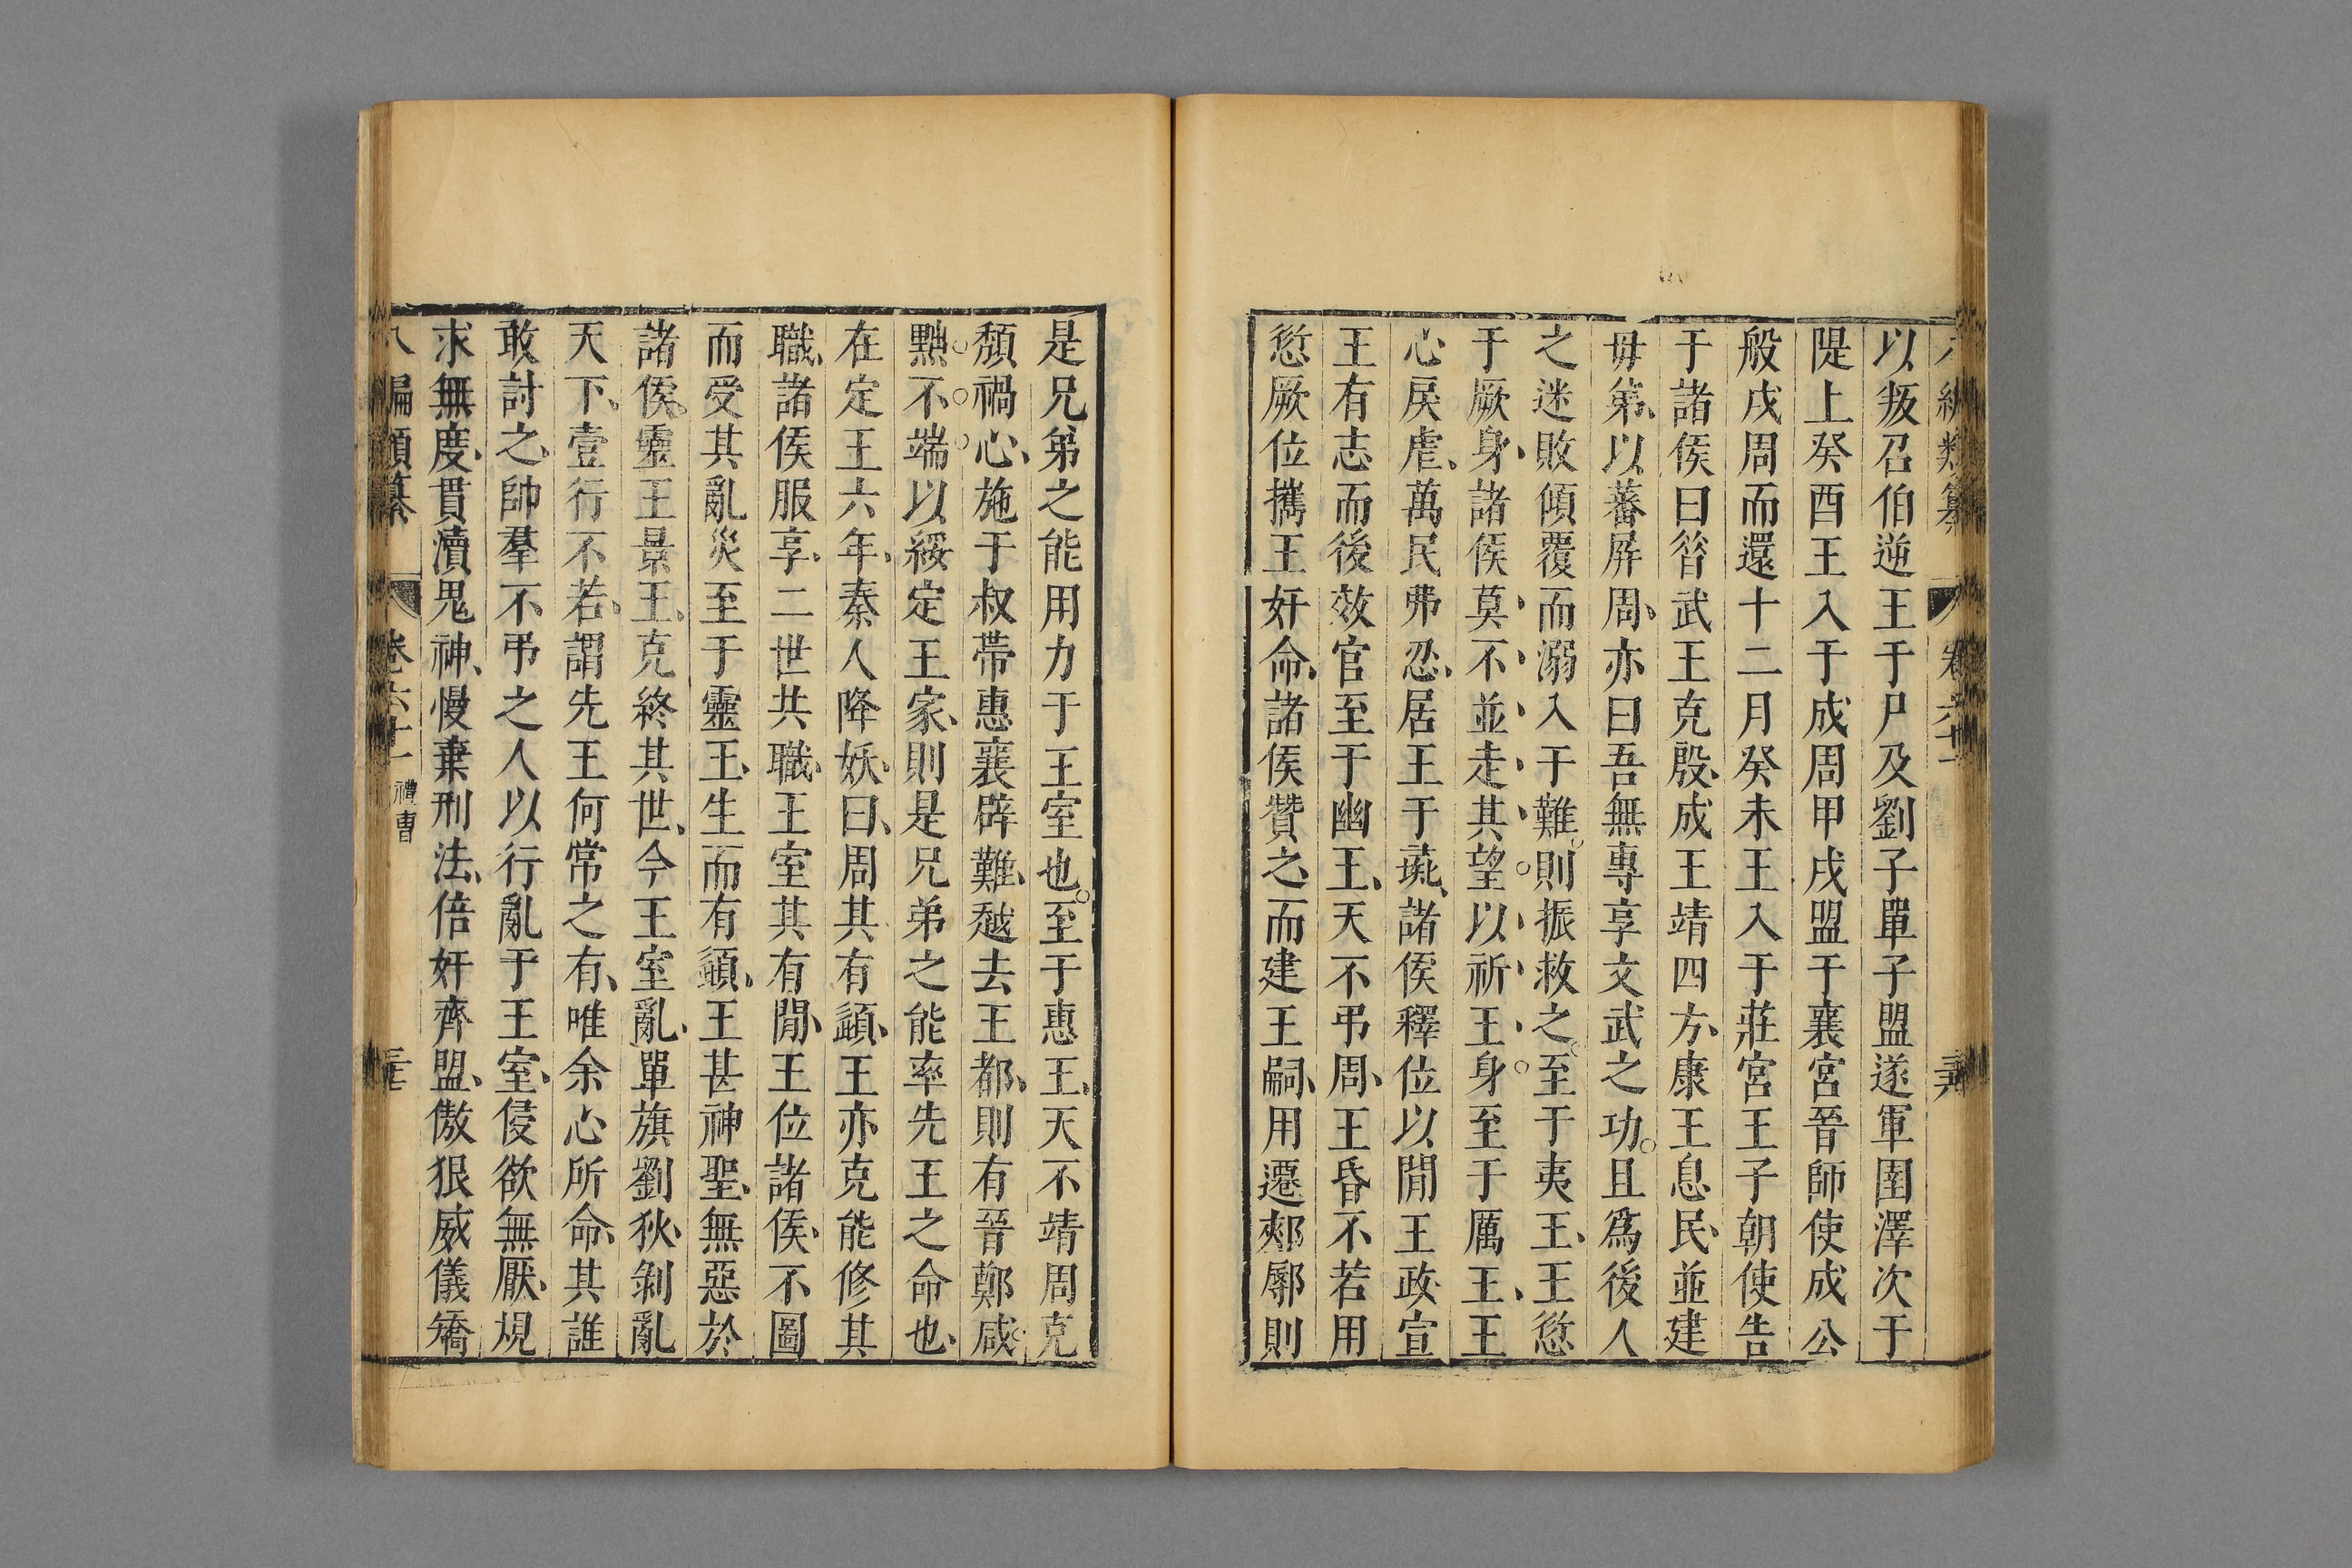 以叛召伯逆王于尸及劉子單子盟遂軍圉澤次于
隄上癸酉王入于成周甲戌盟于襄宮晉師使成公
般戍周而還十二月癸未王入于莊宮王子朝使告
于諸侯曰昝武王克殷、成王靖四方、康王息民、並建
毋弟、以蕃屏周、亦曰吾無專享文武之功。且為後人
之迷敗傾覆而溺入于難。則振救之。至于夷王、王愆
于厥身、諸侯莫、不、並、走、其、望。以、祈、王、身。至于厲王、王
心戾虐、萬民弗忍、居王于彘、諸侯釋位以閒王政宣
王有志而後效官至于幽王、天不弔周、王昏不若用
愆厥位攜王奸命、諸侯贊之、而建王嗣、用遷郟鄏則
是兄弟之能用力于王室也。至于惠王、天不靖周克
頹禍心、施于叔帶惠襄辟難、越去王都、則有晉鄭咸。
黜。不。端。以綏定王家、則是兄弟之能率先王之命也、
在定王六年、秦人降妖、曰、周其有頿、王亦克能修其
職、諸侯服享、二世共職、王室其有閒、王位諸侯、不圖
而受其亂災至于靈王、生而有頿、王甚神聖、無惡於
諸侯。靈王景王、克終其世、今王室亂、單旗劉狄、剝亂
天下、壹行不若、謂先王何常之有、唯余心所命、其誰
敢討之、帥羣不弔之人以行亂于王室、侵欲無厭、規
求無度、貫瀆鬼神、慢棄刑法、倍奸齊盟、傲狠威儀矯
八編類纂 卷六十一 禮曹